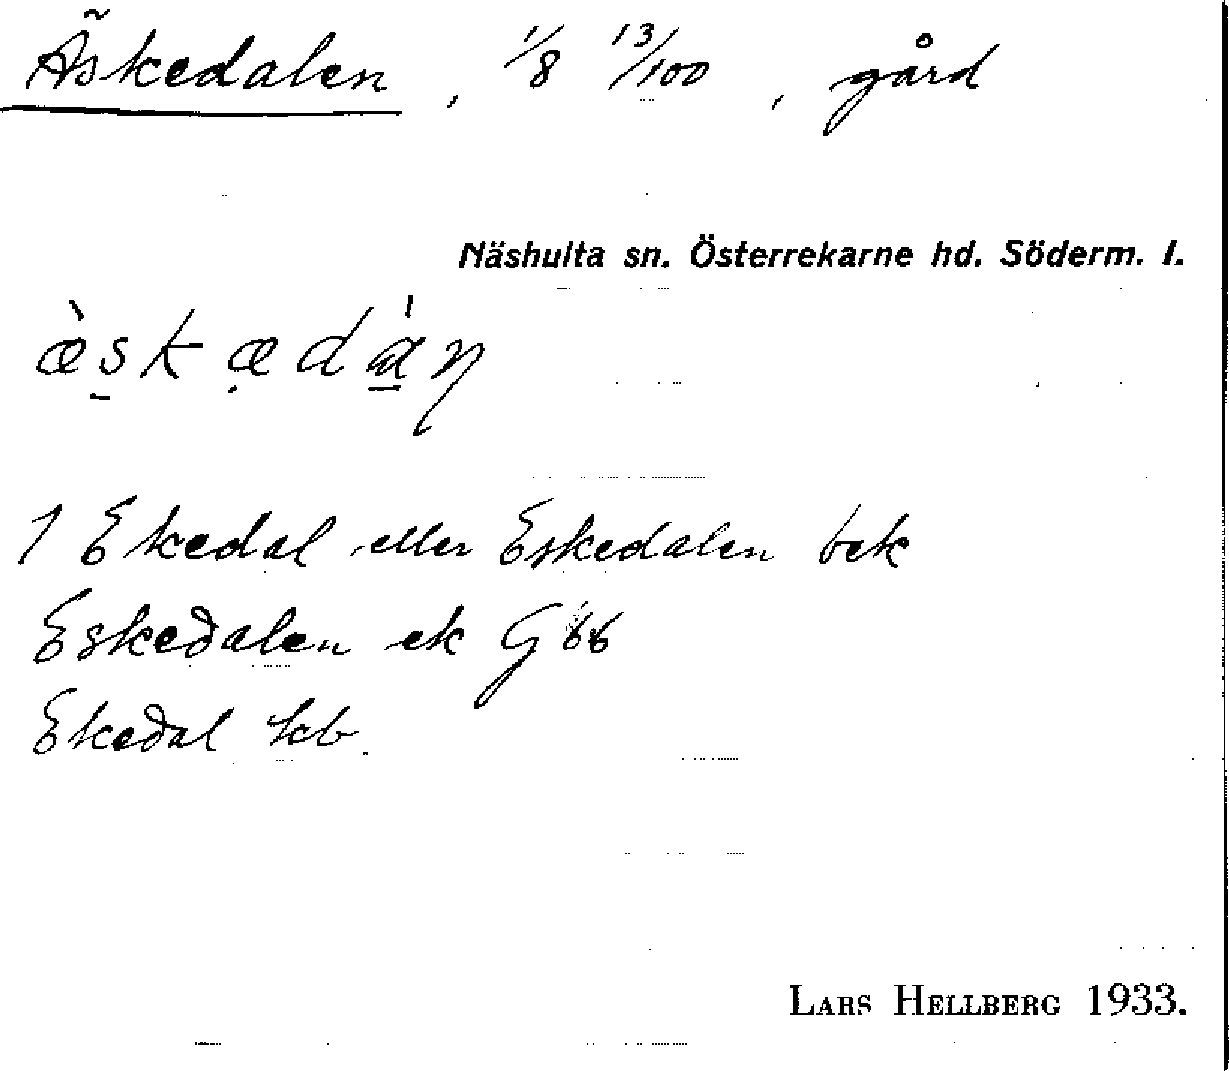 Äskedalen, 1/8 13/100, gård
Näshulta sn. Österrekarne hd. Söderm. l.
æ̀skædàn
1 Ekedal eller Eskedalen bek
Eskedalen ek G 66
Ekedal kb.
LARS HELLBERG 1933.